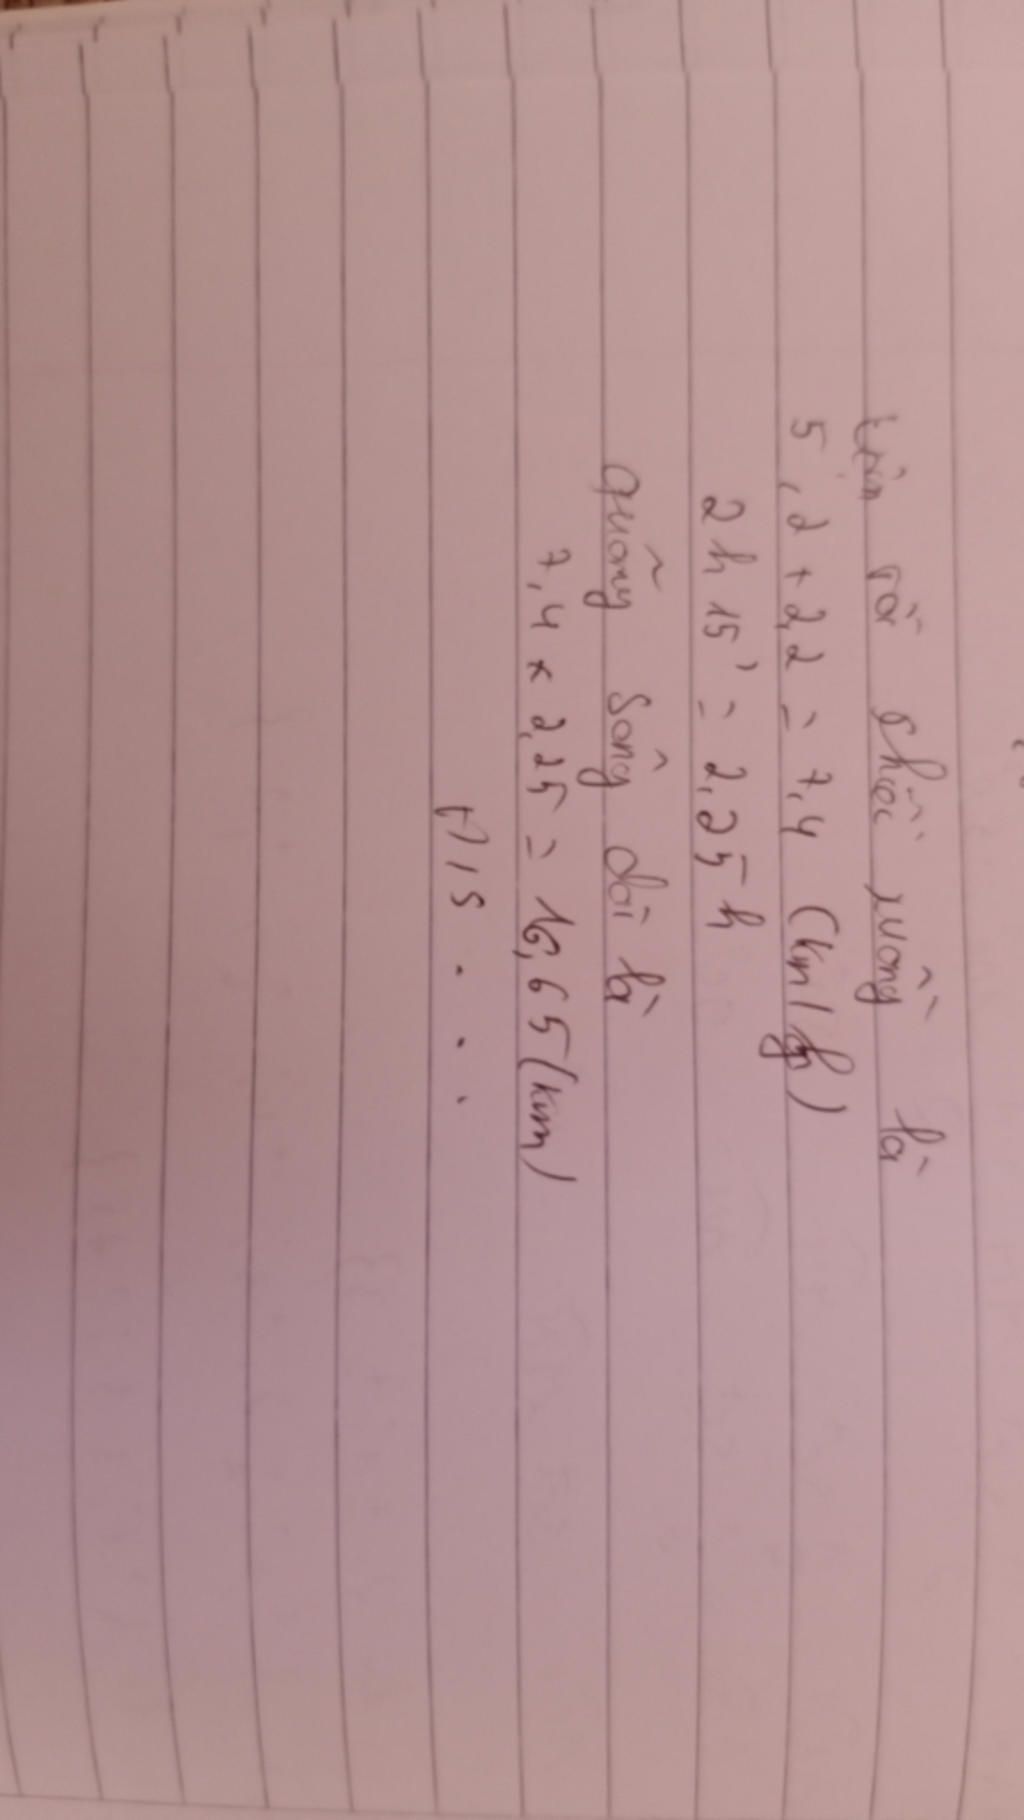 vận tốc chiếc xuồng là
5,2 + 2,2 = 7,4 (km/h)
2h15' = 2,25h
quãng sông dài là
7,4 x 2,25 = 16,65 (km)
Đ/S . . .